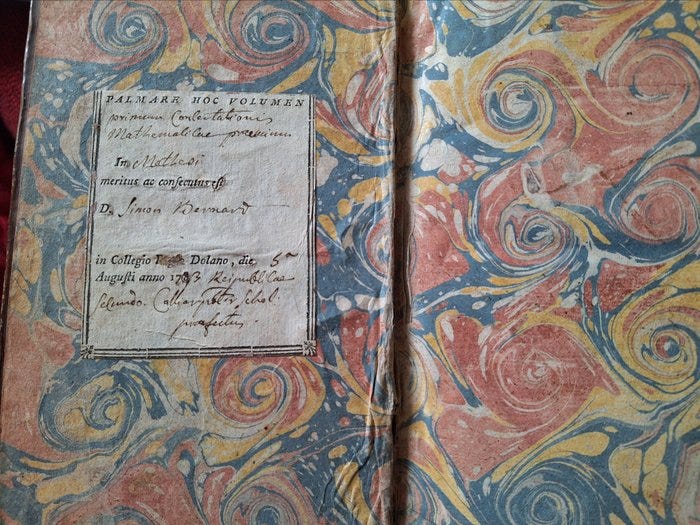 PALMARE HOC VOLUMEN
primum Concertationis
Mathematicae praemium
In Mathesi
meritus ac consecutus est
D. Simon Bernard
in Collegio Dolano, die 5a
Augusti anno 1793 Reipublicae
secundo.
praefectus.